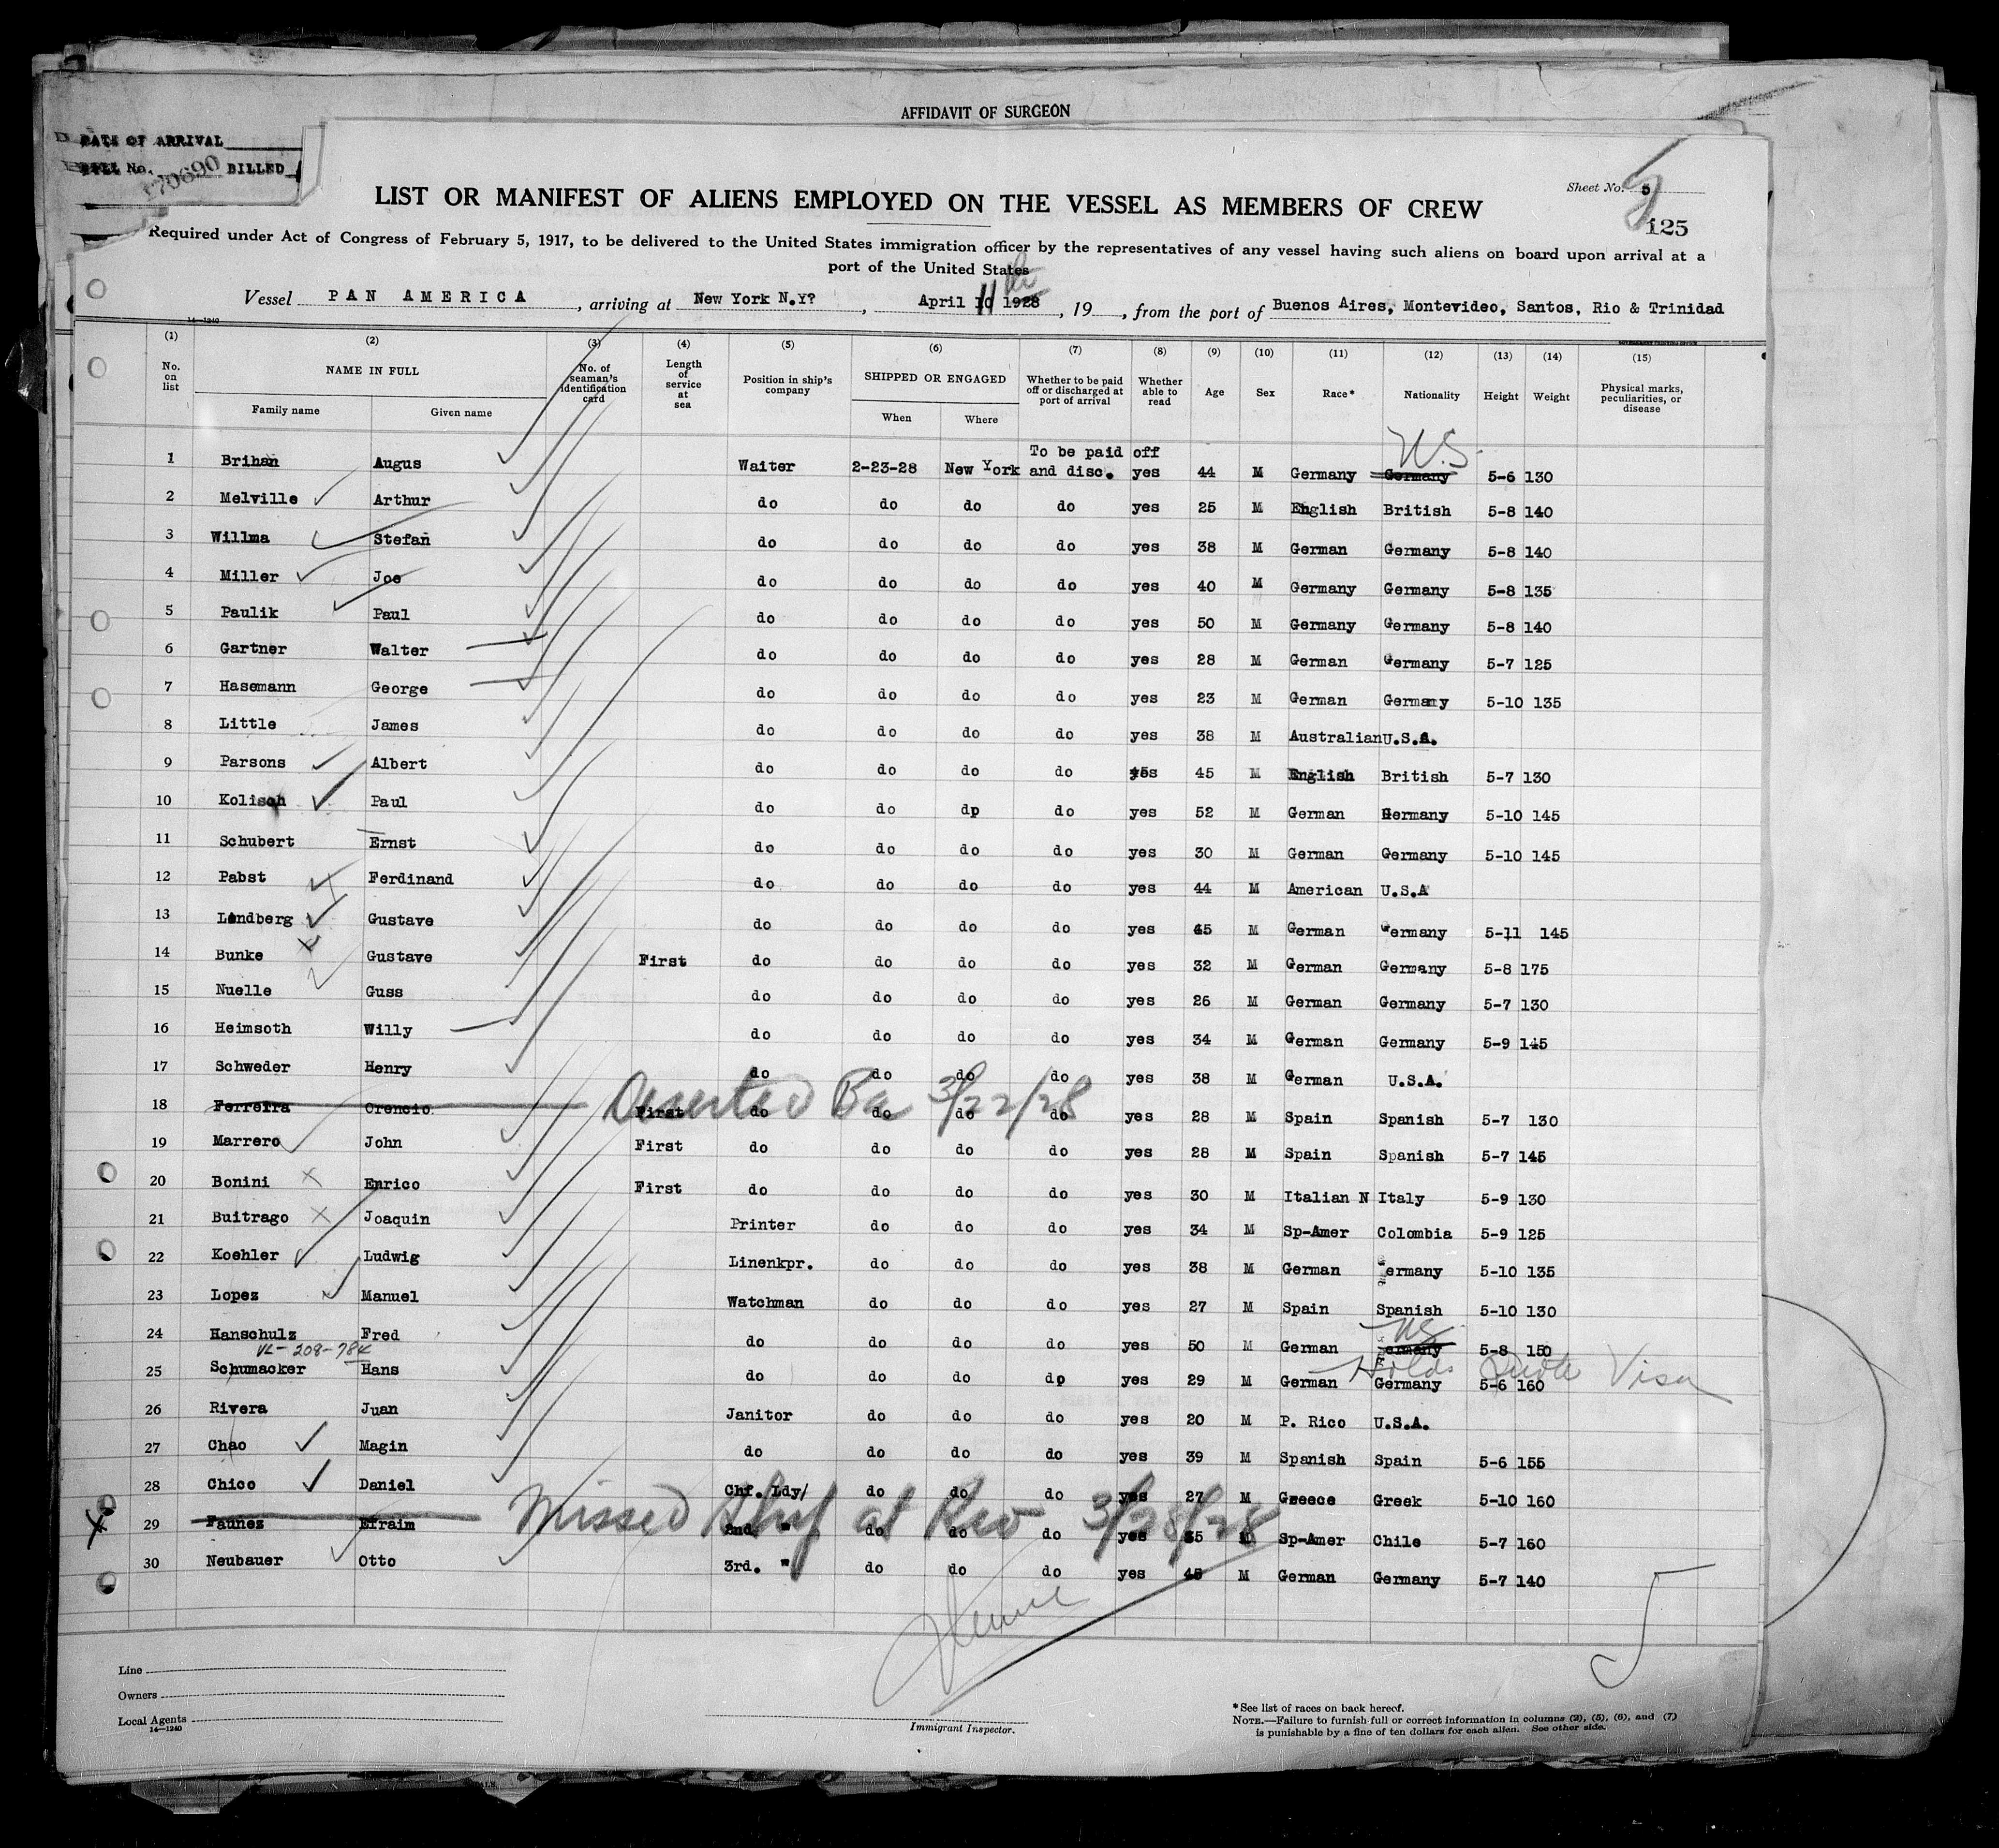 AFFIDAVIT OF SURGEON
DATE OF ARRIVAL
BILL No. 170690 BILLED
Sheet No. 5
5
125
LIST OR MANIFEST OF ALIENS EMPLOYED ON THE VESSEL AS MEMBERS OF CREW
Required under Act of Congress of February 5, 1917, to be delivered to the United States immigration officer by the representatives of any vessel having such aliens on board upon arrival at a
port of the United States
Vessel PAN AMERICA, arriving at New York N.Y?, April 10 11th 1928, 19, from the port of Buenos Aires, Montevideo, Santos, Rio & Trinidad
14—1240
(1) (2) (3) (4) (5) (6) (7) (8) (9) (10) (11) (12) (13) (14) (15)
No. on list NAME IN FULL Family name Given name No. of seaman's identification card Length of service at sea Position in ship's company SHIPPED OR ENGAGED When Where Whether to be paid off or discharged at port of arrival Whether able to read Age Sex Race* Nationality Height Weight Physical marks, peculiarities, or disease
U.S.
1 Brihan Augus Waiter 2-23-28 New York To be paid off and disc. yes 44 M Germany Germany 5-6 130
2 Melville Arthur do do do do yes 25 M English British 5-8 140
3 Willma Stefan do do do do yes 38 M German Germany 5-8 140
4 Miller Joe do do do do yes 40 M Germany Germany 5-8 135
5 Paulik Paul do do do do yes 50 M Germany Germany 5-8 140
6 Gartner Walter do do do do yes 28 M German Germany 5-7 125
7 Hasemann George do do do do yes 23 M German Germany 5-10 135
8 Little James do do do do yes 38 M Australian U.S.A.
9 Parsons Albert do do do do yes 45 M English British 5-7 130
10 Kolisch Paul do do dp do yes 52 M German Germany 5-10 145
11 Schubert Ernst do do do do yes 30 M German Germany 5-10 145
12 Pabst Ferdinand do do do do yes 44 M American U.S.A
13 Lindberg Gustave do do do do yes 45 M German Germany 5-11 145
14 Bunke Gustave First do do do do yes 32 M German Germany 5-8 175
15 Nuelle Guss do do do do yes 26 M German Germany 5-7 130
16 Heimsoth Willy do do do do yes 34 M German Germany 5-9 145
17 Schweder Henry do do do do yes 38 M German U.S.A.
Deserted Ba 3/22/28
18 Ferreira Orencio. First do do do do yes 28 M Spain Spanish 5-7 130
19 Marrero John First do do do do yes 28 M Spain Spanish 5-7 145
20 Bonini Enrico First do do do do yes 30 M Italian N Italy 5-9 130
21 Buitrago Joaquin Printer do do do yes 34 M Sp-Amer Colombia 5-9 125
22 Koehler Ludwig Linenkpr. do do do yes 38 M German Germany 5-10 135
23 Lopez Manuel Watchman do do do yes 27 M Spain Spanish 5-10 130
24 Hanschulz Fred do do do do yes 50 M German Germany 5-8 150
US.
VL-208-784
25 Schumacker Hans do do do dp yes 29 M German Germany 5-6 160
Holds Quota Visa
26 Rivera Juan Janitor do do do yes 20 M P. Rico U.S.A.
27 Chao Magin do do do do yes 39 M Spanish Spain 5-6 155
28 Chico Daniel Chf. Ldy/ do do do yes 27 M Greece Greek 5-10 160
Missed Ship at Rio 3/28/28
29 Faunez Efraim 2nd. " do do do yes 35 M Sp-Amer Chile 5-7 160
30 Neubauer Otto 3rd. " do do do yes 45 M German Germany 5-7 140
5
Line
Owners
Local Agents
14—1240
Immigrant Inspector.
*See list of races on back hereof.
NOTE.—Failure to furnish full or correct information in columns (2), (5), (6), and (7)
is punishable by a fine of ten dollars for each alien. See other side.